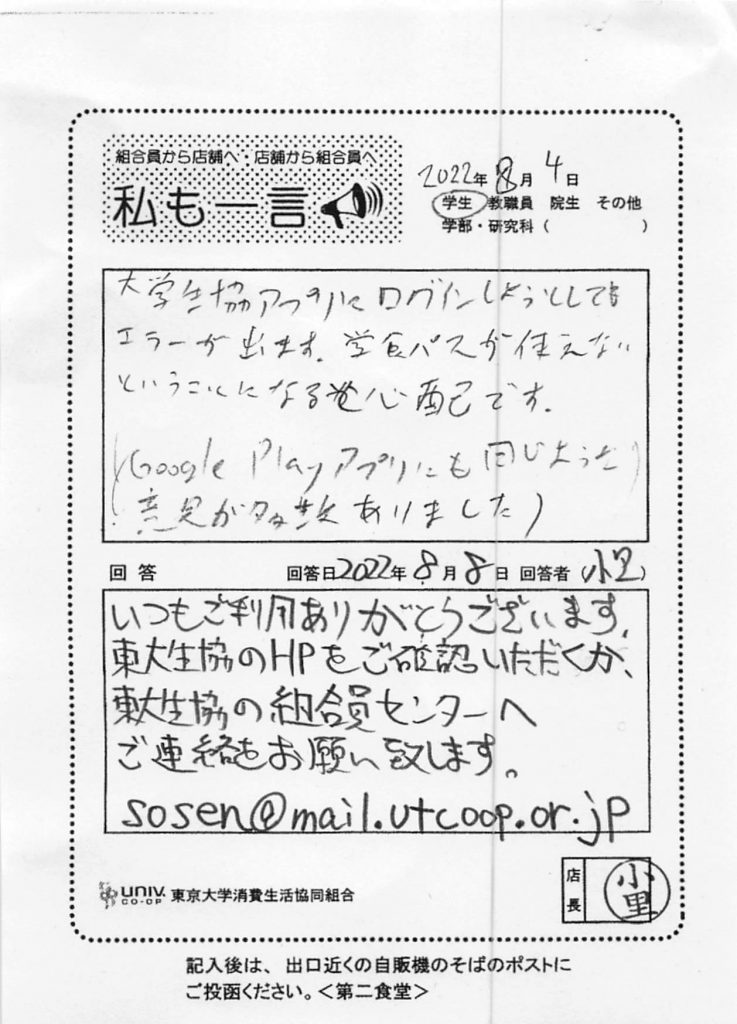 組合員から店舗へ・店舗から組合員へ
私も一言
2022年8月4日
学生 教職員 院生 その他
学部・研究科（　　　　）
大学生協アプリにログインしようとしても
エラーが出ます。学食パスが使えない
ということになる心配です。
(Google Playアプリにも同じような
意見が多数ありました)
回答 回答日2022年8月8日 回答者（小里）
いつもご利用ありがとうございます。
東大生協のHPをご確認いただくか、
東大生協の組合員センターへ
ご連絡をお願い致します。
sosen@mail.utcoop.or.jp
UNIV. CO-OP 東京大学消費生活協同組合
店長 小里
記入後は、出口近くの自販機のそばのポストに
ご投函ください。＜第二食堂＞